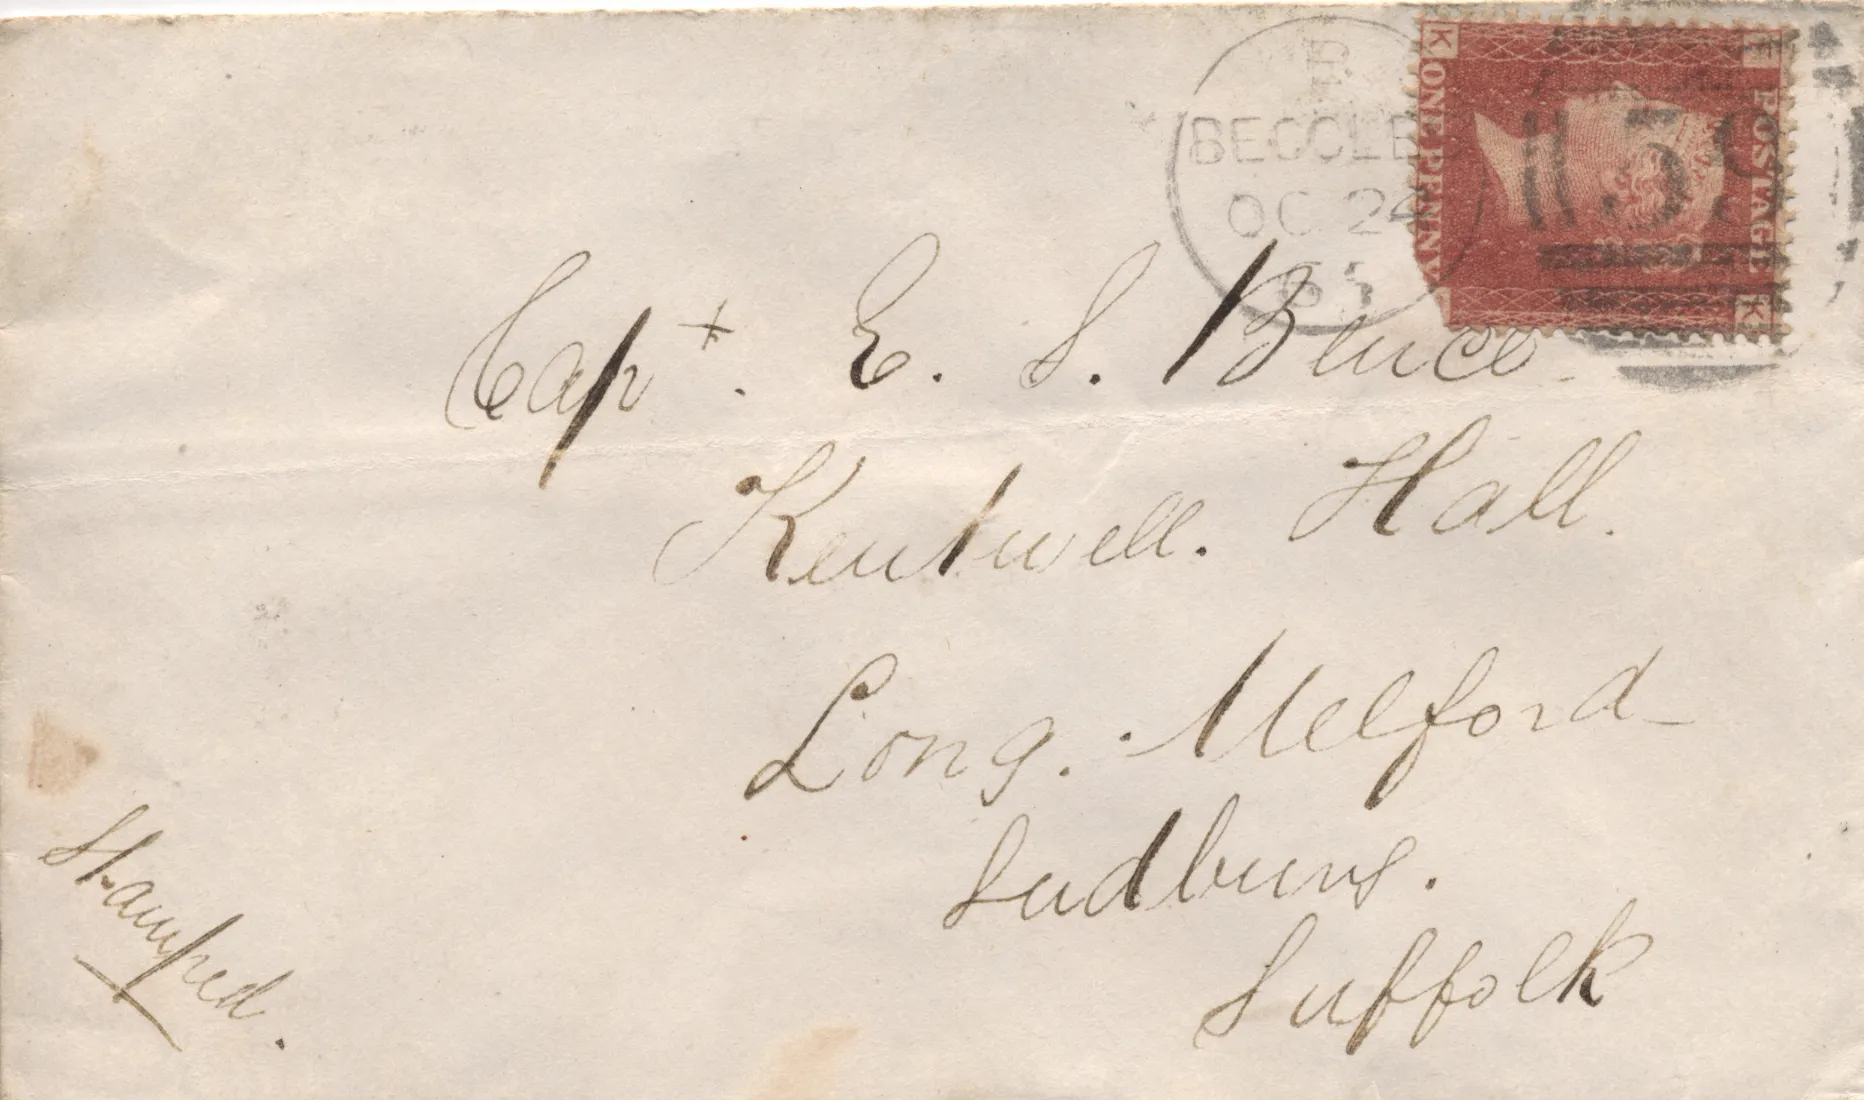 BECCLES
OC 24
ONE PENNY
POSTAGE
K
K
Capt. E. S. Bence
Kentwell. Hall.
Long. Melford
Sudbury.
Suffolk
Stamped.